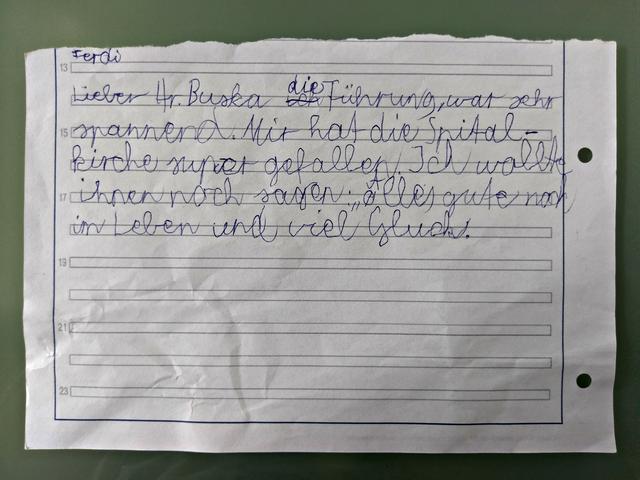 Ferdi
13
Lieber Hr. Buska die Führung, war sehr
15 spannend. Mir hat die Spital-
kirche super gefallen. Ich wollte
17 ihnen noch sagen: „Alles gute noch
im Leben und viel Glück!
19
21
23